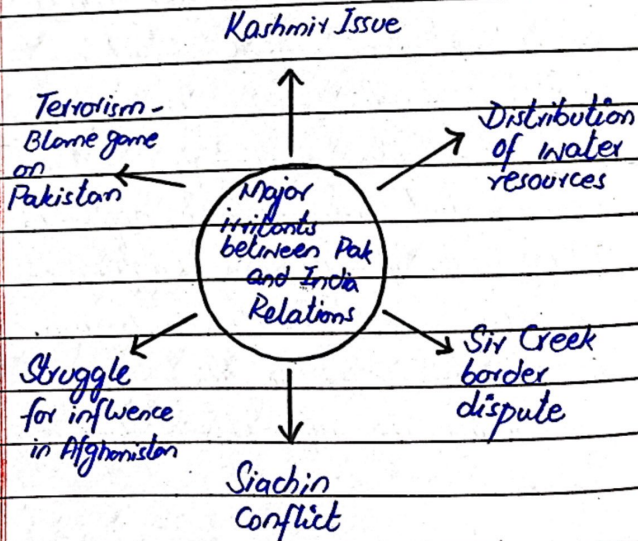 Kashmir Issue
Terrorism -
Blame game
on
Pakistan
Distribution
of water
resources
Major
irritants
between Pak
and India
Relations
Struggle
for influence
in Afghanistan
Sir Creek
border
dispute
Siachin
Conflict